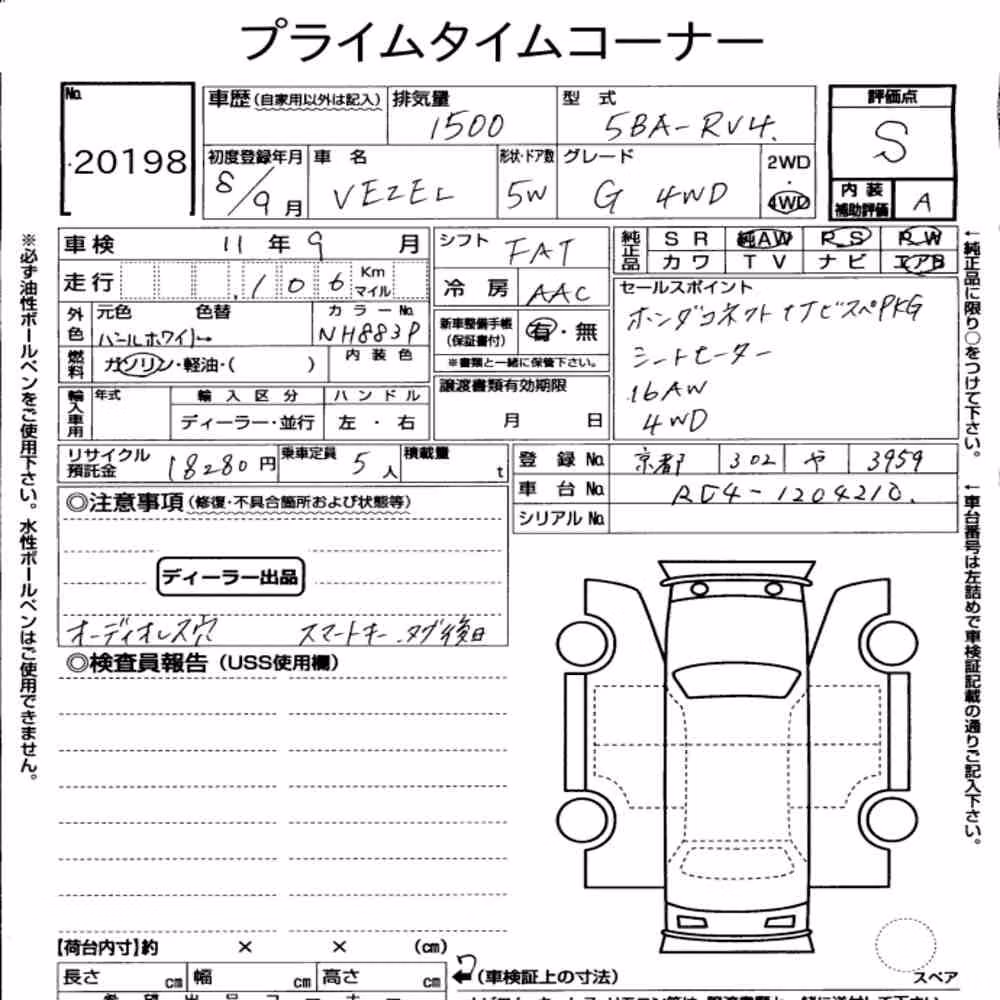 プライムタイムコーナー
No. 20198
車歴(自家用以外は記入) 排気量 1500 型式 5BA-RV4. 評価点 S
初度登録年月 8/9月 車名 VEZEL 形状・ドア数 5W グレード G 4WD 2WD・4WD 内装補助評価 A
車検 11年9月 シフト FAT 純正品 SR 純AW PS PW
走行 106 Km マイル 冷房 AAC カワ TV ナビ エアB
外色 元色 パールホワイト 色替 カラーNo. NH883P 新車整備手帳(保証書付) 有・無 セールスポイント
ホンダコネクトナビスペPKG
シートヒーター
16AW
4WD
燃料 ガソリン・軽油・( ) 内装色 ※書類と一緒に保管下さい。
輸入車用 年式 輸入区分 ハンドル 譲渡書類有効期限
ディーラー・並行 左・右 月 日
リサイクル預託金 18280円 乗車定員 5人 積載量 t 登録No. 京都 302 や 3959
車台No. RV4-1204210.
シリアルNo.
◎注意事項(修復・不具合箇所および状態等)
ディーラー出品
オーディオレス穴 スマートキー.タグ後日
◎検査員報告(USS使用欄)
【荷台内寸】約 × × (cm)
長さ cm 幅 cm 高さ cm (車検証上の寸法)
スペア
※必ず油性ボールペンをご使用下さい。水性ボールペンはご使用できません。
←純正品に限り○をつけて下さい。
←車台番号は左詰めで車検証記載の通りご記入下さい。